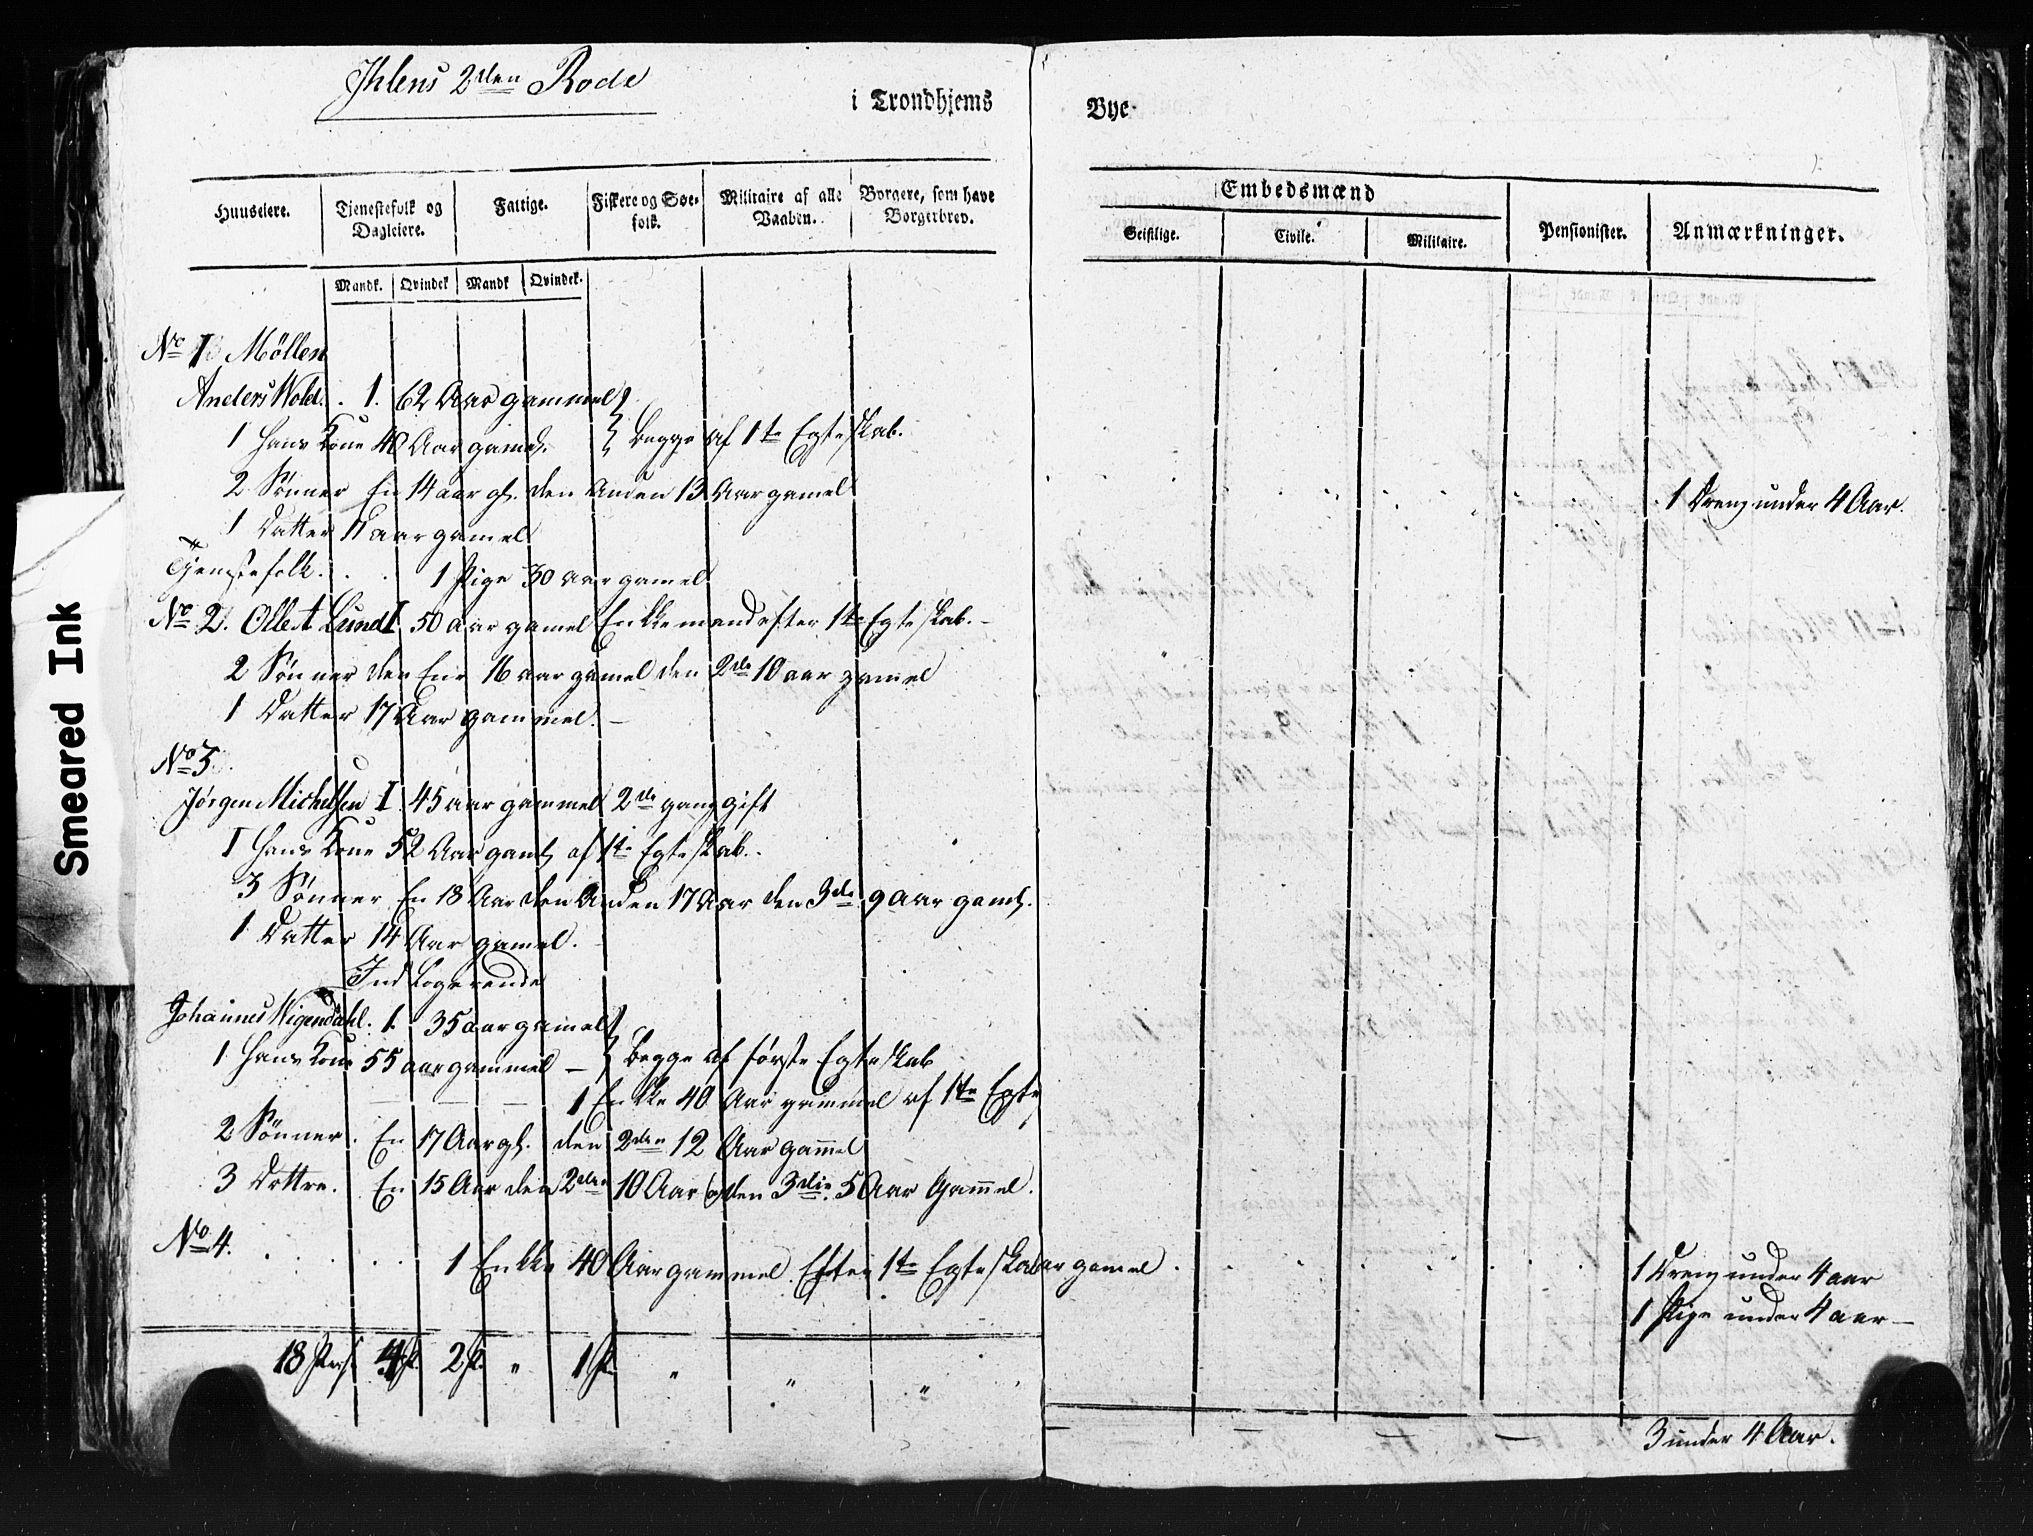 Ihlens 2den Rode
i Trondhjems
Bye
Huuseiere.
Tjenestefolk og Dagleiere.
Fattige.
Fiskere og Søefolk.
Militaire af alle Vaaben.
Borgere, som have Borgerbrev.
Embedsmænd
Geistlige.
Civile.
Militaire.
Pensionister.
Anmærkninger.
Mandk.
Qvindek
Mandk
Qvindek.
No 1 Møllen
Anders Wold. . 1. 62 Aar gammel
1 Hans Kone 40 Aar gamel. } begge af 1te Egteskab.
2 Sønner En 14 aar gl. den Anden 13 Aar gamel
1 Dreng under 4 Aar.
1 Datter 11 aar gamel
Tjenestefolk. . . 1 Pige 30 aar gamel
No 2. Olle A Lund I 50 aar gamel Enkkemand efter 1te Egteskab. -
2 Sønner den Ene 16 aar gamel den 2de 10 aar gamel
1 Datter 17 Aar gammel. -
No 3.
Jørgen Michelsen I 45 aar gammel 2de gang gift
I Hans Kone 52 Aar gaml af 1te Egteskab.
3 Sønner En 18 Aar den Anden 17 Aar den 3de 9 Aar gaml.
1 Datter 14 Aar gamel.
Ind Logerende
Johannes Wigendahl. 1. 35 aar gamel
1 Hans Kone 55 aar gammel - } begge af første Egteskab
1 Enkke 40 Aar gammel af 1te Egte
2 Sønner. En 17 Aar gl. den 2den 12 Aar gam̄el
3 Døttre. En 15 Aar den 2den 10 Aar og den 3die 5 Aar Gam̄el.
No 4. . . . . 1 Enkke 40 Aar gammel. Efter 1te Egteskab
ar gamel .
1 Dreng under 4 aar
1 Pige under 4 aar -
18 Pers 4 P. 2 P. " 1 P. " " "
3 under 4 Aar.
Smeared Ink